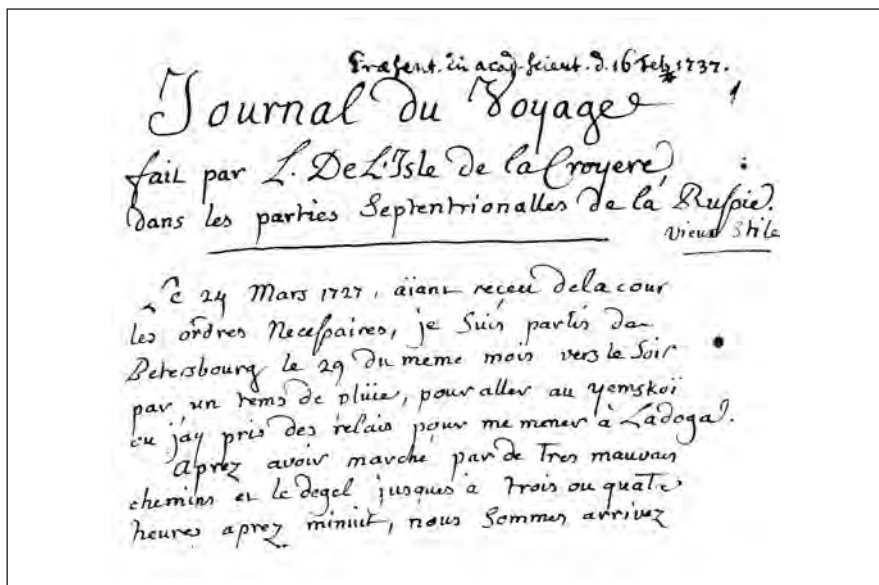 Præsent. in acad. scient. d. 16 feb. 1737.
Journal du Voyage 1
fait par L. De L'Isle de la Croyere,
dans les parties Septentrionalles de la Russie.
vieux Stile
Le 24 Mars 1727, aïant receu de la cour
les ordres Necessaires, je suis partis de
Petersbourg le 29 du meme mois vers le Soir
par un tems de plüie, pour aller au yemskoï
ou j'ay pris des relais pour me mener à Ladoga.
aprez avoir marché par de Tres mauvais
chemins et le degel jusques à trois ou quatre
heures aprez minuit, nous Sommes arrivez